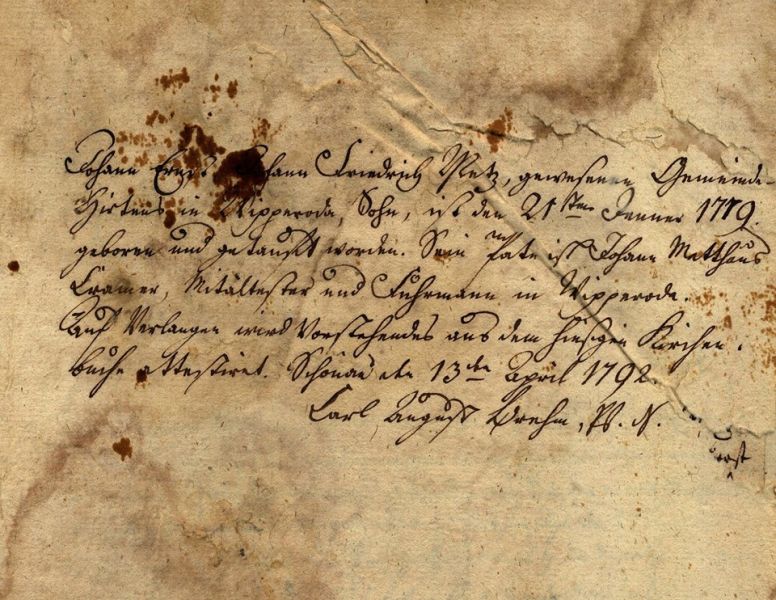 Johann Ernst Johann Friedrich Metz, gewesenen Gemeinde-
Hirtens in Wipperoda, Sohn, ist den 21sten Jenner 1779.
geboren und getauft worden. Sein Pate ist Johann Matthäus
Cramer, Mitältester und Fuhrmann in Wipperoda.
Auf Verlangen wird Vorstehendes aus dem hiesigen Kirchen-
buche attestiret. Schönau den 13ten April 1792.
Carl August Brehm,